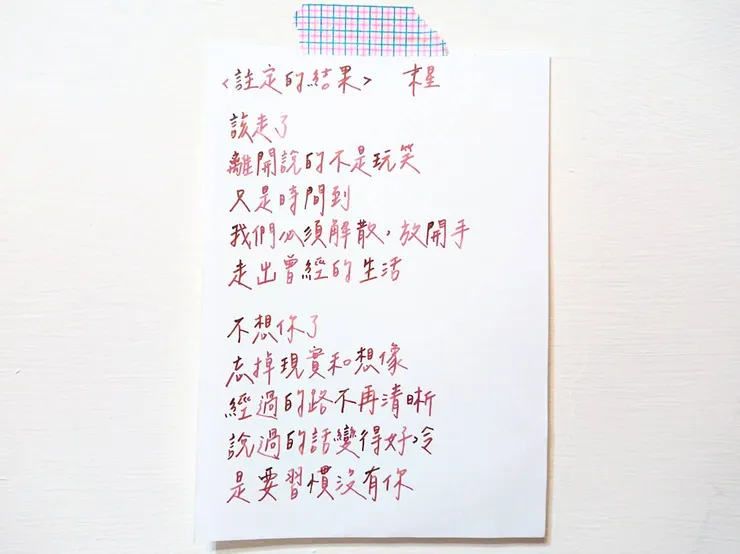 <註定的結果> 木星
該走了
離開說的不是玩笑
只是時間到
我們必須解散,放開手
走出曾經的生活
不想你了
忘掉現實和想像
經過的路不再清晰
說過的話變得好冷
是要習慣沒有你